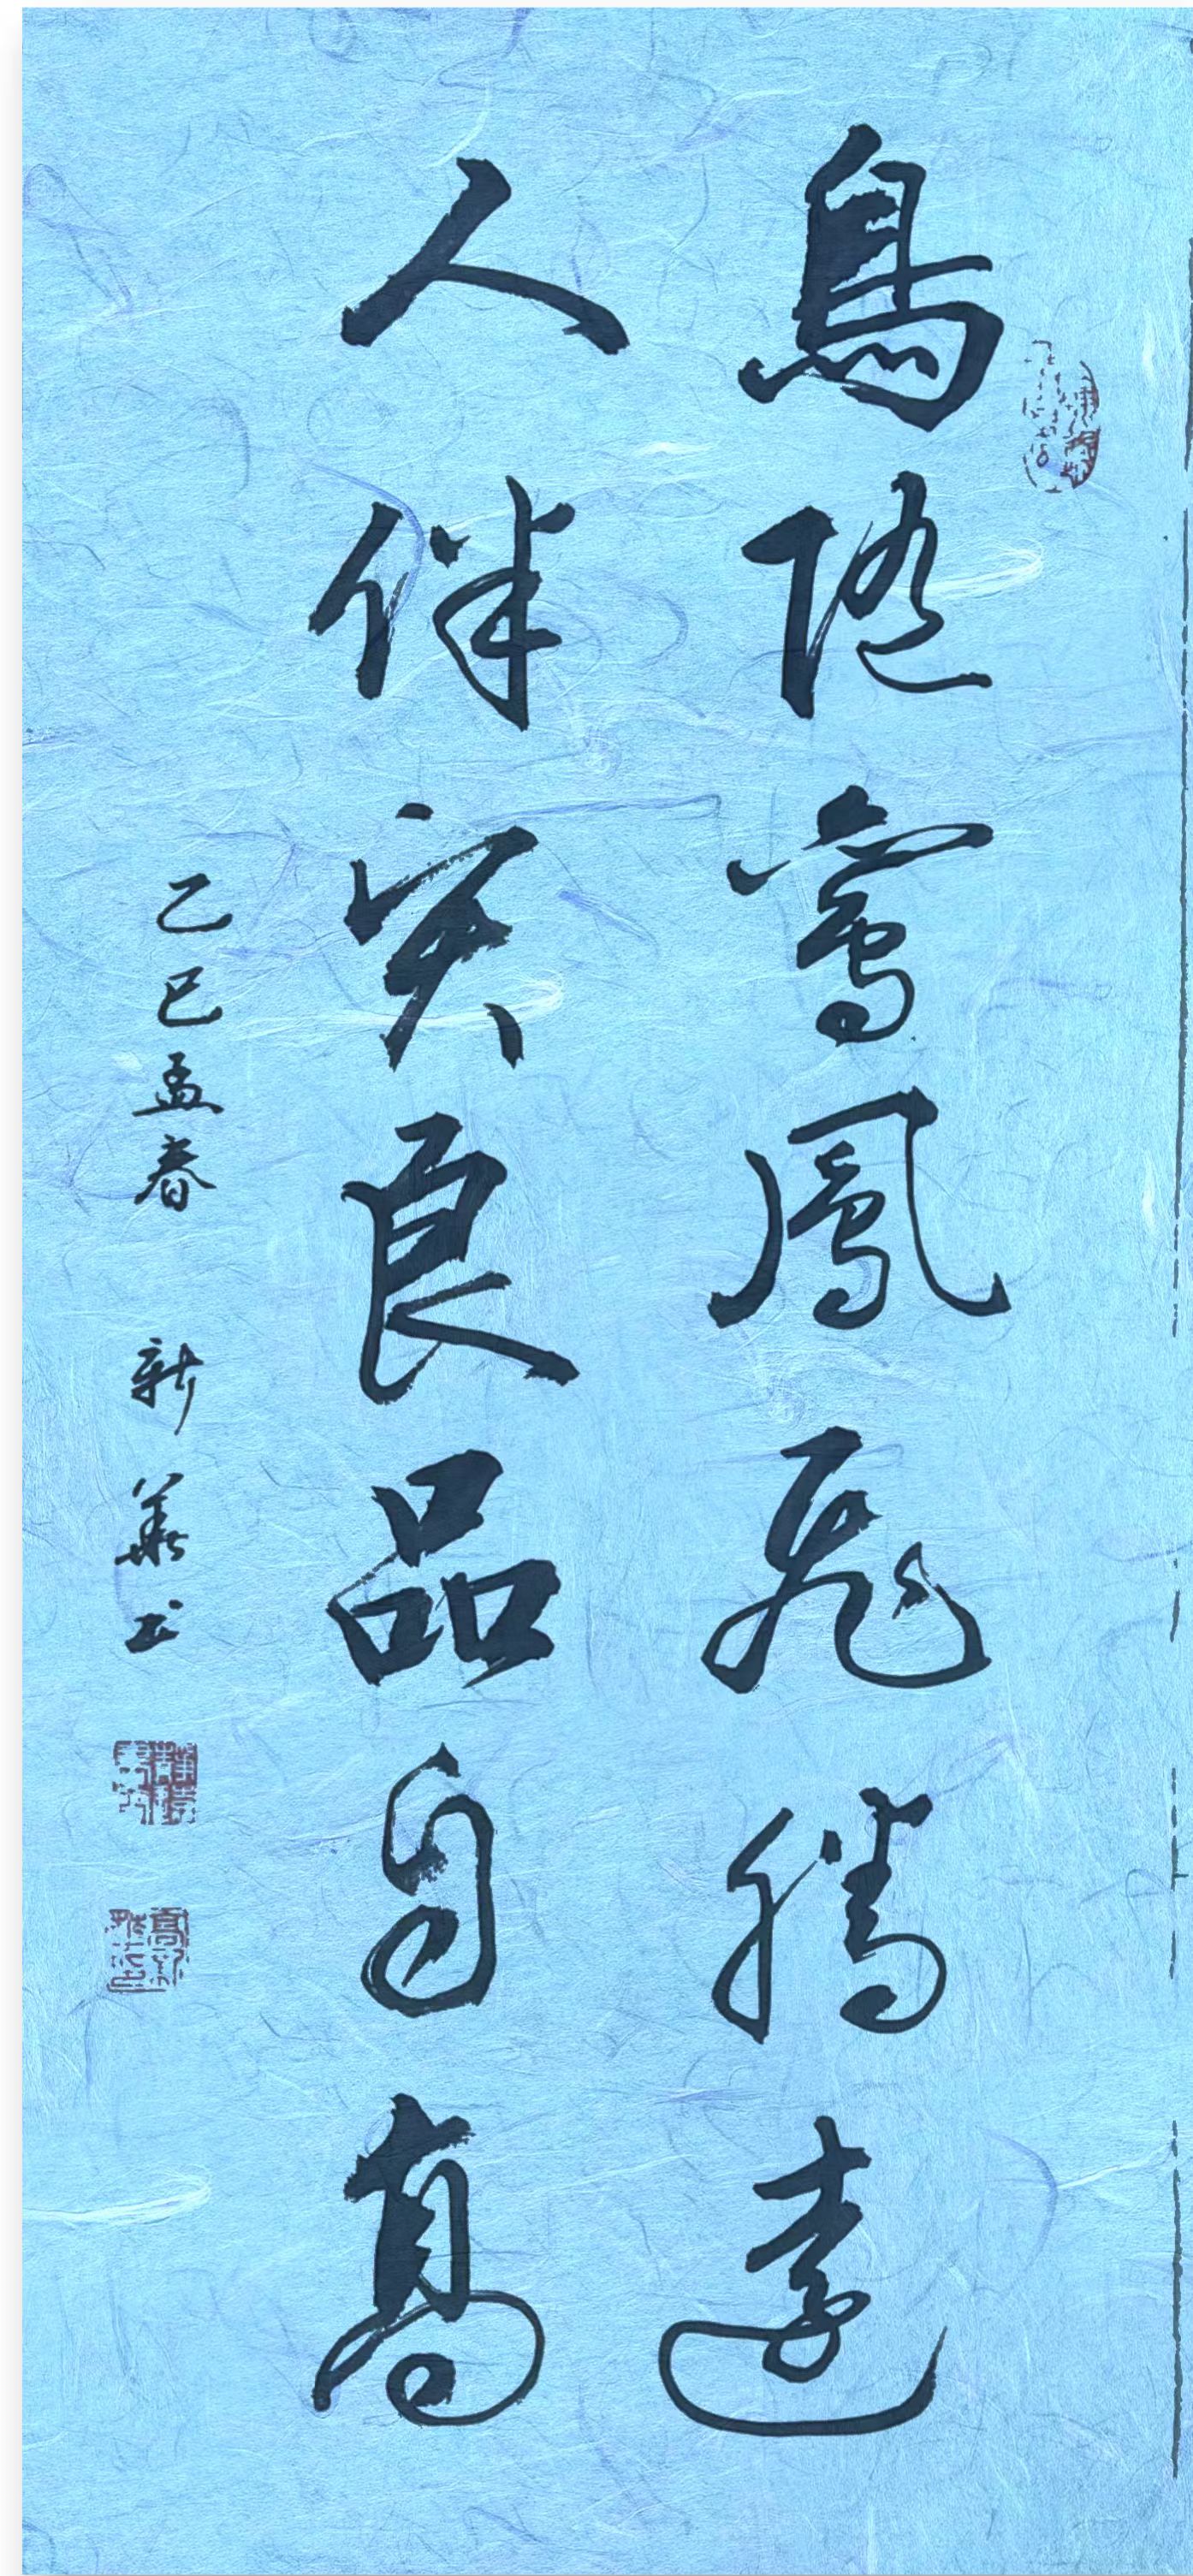 鳥隨鸞鳳飛騰遠
人伴賢良品自高
乙巳孟春 新華书